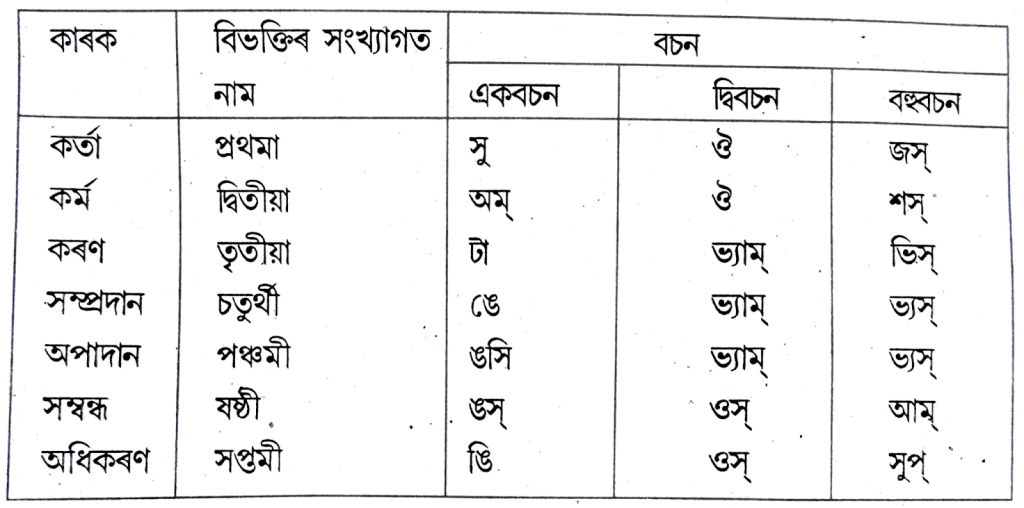 কাৰক বিভক্তিৰ সংখ্যাগত নাম বচন
একবচন দ্বিবচন বহুবচন
কৰ্তা প্ৰথমা সু ঔ জস্
কৰ্ম দ্বিতীয়া অম্ ঔ শস্
কৰণ তৃতীয়া টা ভ্যাম্ ভিস্
সম্প্ৰদান চতুৰ্থী ঙে ভ্যাম্ ভ্যস্
অপাদান পঞ্চমী ঙসি ভ্যাম্ ভ্যস্
সম্বন্ধ ষষ্ঠী ঙস্ ওস্ আম্
অধিকৰণ সপ্তমী ঙি ওস্ সুপ্